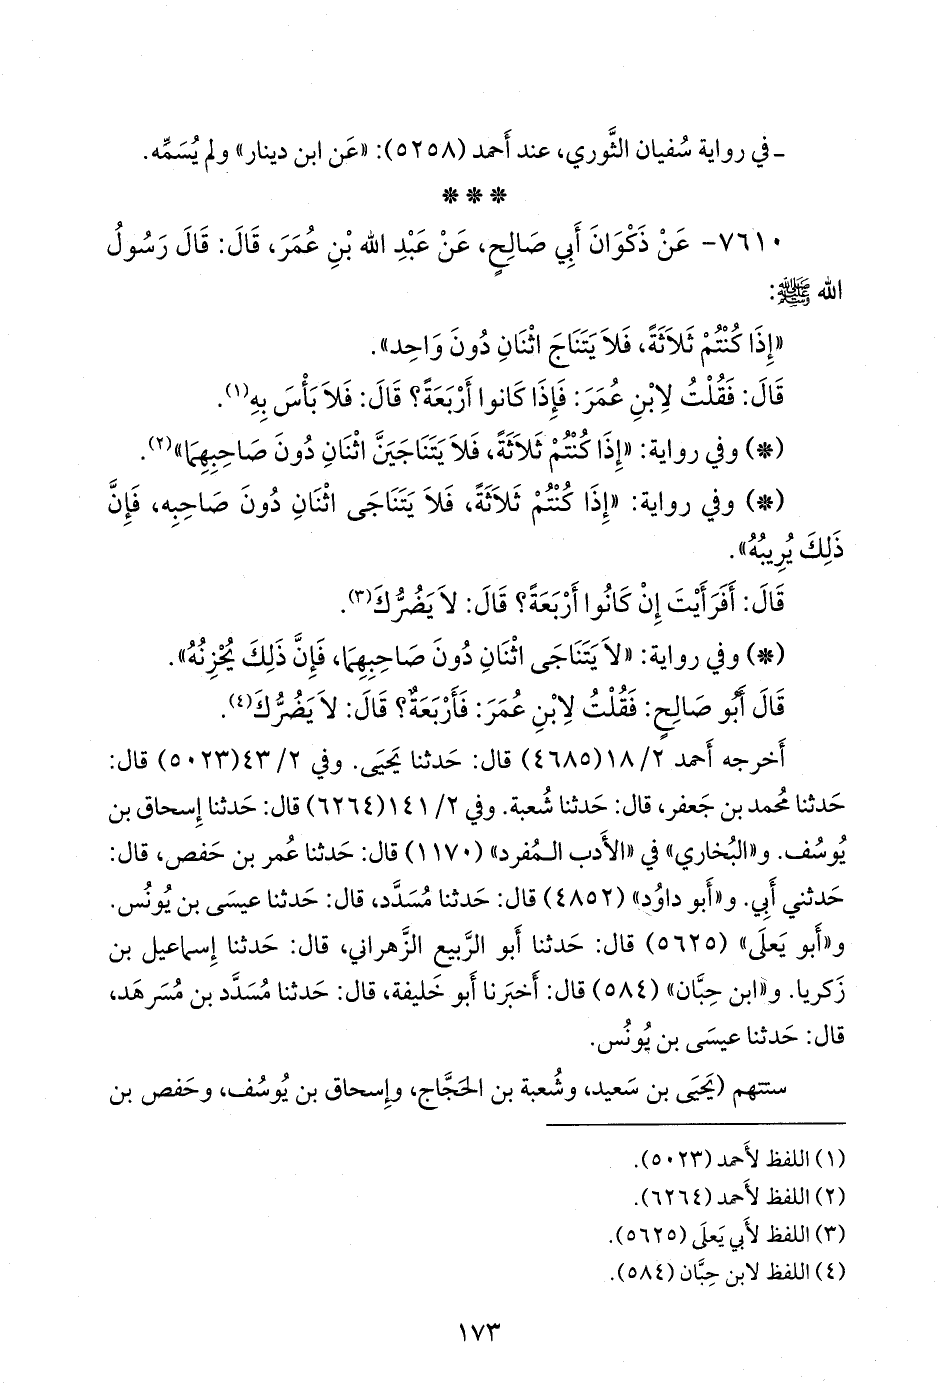 ـ في رواية سُفيان الثَّوري، عند أَحمد (٥٢٥٨): «عَن ابن دينار» ولم يُسَمِّه.
* * *
٧٦١٠- عَنْ ذَكْوَانَ أَبِي صَالِحٍ، عَنْ عَبْدِ الله بْنِ عُمَرَ، قَالَ: قَالَ رَسُولُ
الله ﷺ:
«إِذَا كُنْتُمْ ثَلاَثَةً، فَلاَ يَتَنَاجَ اثْنَانِ دُونَ وَاحِد».
قَالَ: فَقُلْتُ لاِبْنِ عُمَرَ: فَإِذَا كَانوا أَرْبَعَةً؟ قَالَ: فَلاَ بَأْسَ بِهِ(١).
(*) وفي رواية: «إِذَا كُنْتُمْ ثَلاَثَةً، فَلاَ يَتَنَاجَيَنَّ اثْنَانِ دُونَ صَاحِبِهِمَا»(٢).
(*) وفي رواية: «إِذَا كُنْتُمْ ثَلاَثَةً، فَلاَ يَتَنَاجَى اثْنَانِ دُونَ صَاحِبِه، فَإِنَّ
ذَلِكَ يُرِيبُهُ».
قَالَ: أَفَرَأَيْتَ إِنْ كَانُوا أَرْبَعَةً؟ قَالَ: لاَ يَضُرُّكَ(٣).
(*) وفي رواية: «لاَ يَتَنَاجَى اثْنَانِ دُونَ صَاحِبِهِمَا، فَإِنَّ ذَلِكَ يُحْزِنُهُ».
قَالَ أَبُو صَالِحٍ: فَقُلْتُ لاِبْنِ عُمَرَ: فَأَرْبَعَةٌ؟ قَالَ: لاَ يَضُرُّكَ(٤).
أَخرجه أَحمد ٢/ ١٨ (٤٦٨٥) قال: حَدثنا يَحيَى. وفي ٢/ ٤٣ (٥٠٢٣) قال:
حَدثنا مُحمد بن جَعفر، قال: حَدثنا شُعبة. وفي ٢/ ١٤١ (٦٢٦٤) قال: حَدثنا إِسحاق بن
يُوسُف. و«البُخاري» في «الأَدب المُفرد» (١١٧٠) قال: حَدثنا عُمر بن حَفص، قال:
حَدثني أَبي. و«أَبو داوُد» (٤٨٥٢) قال: حَدثنا مُسَدَّد، قال: حَدثنا عيسَى بن يُونُس.
و«أَبو يَعلَى» (٥٦٢٥) قال: حَدثنا أَبو الرَّبيع الزَّهراني، قال: حَدثنا إِسماعيل بن
زَكريا. و«ابن حِبَّان» (٥٨٤) قال: أَخبَرنا أَبو خَليفة، قال: حَدثنا مُسَدَّد بن مُسَرهَد،
قال: حَدثنا عيسَى بن يُونُس.
ستتهم (يَحيَى بن سَعيد، وشُعبة بن الحَجَّاج، وإِسحاق بن يُوسُف، وحَفص بن
(١) اللفظ لأَحمد (٥٠٢٣).
(٢) اللفظ لأَحمد (٦٢٦٤).
(٣) اللفظ لأَبي يَعلَى (٥٦٢٥).
(٤) اللفظ لابن حِبَّان (٥٨٤).
١٧٣